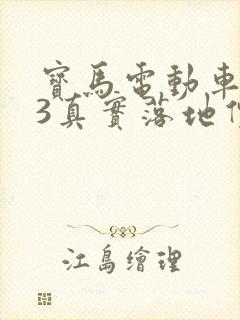 寶馬電動車
3真實落地
江島繪理